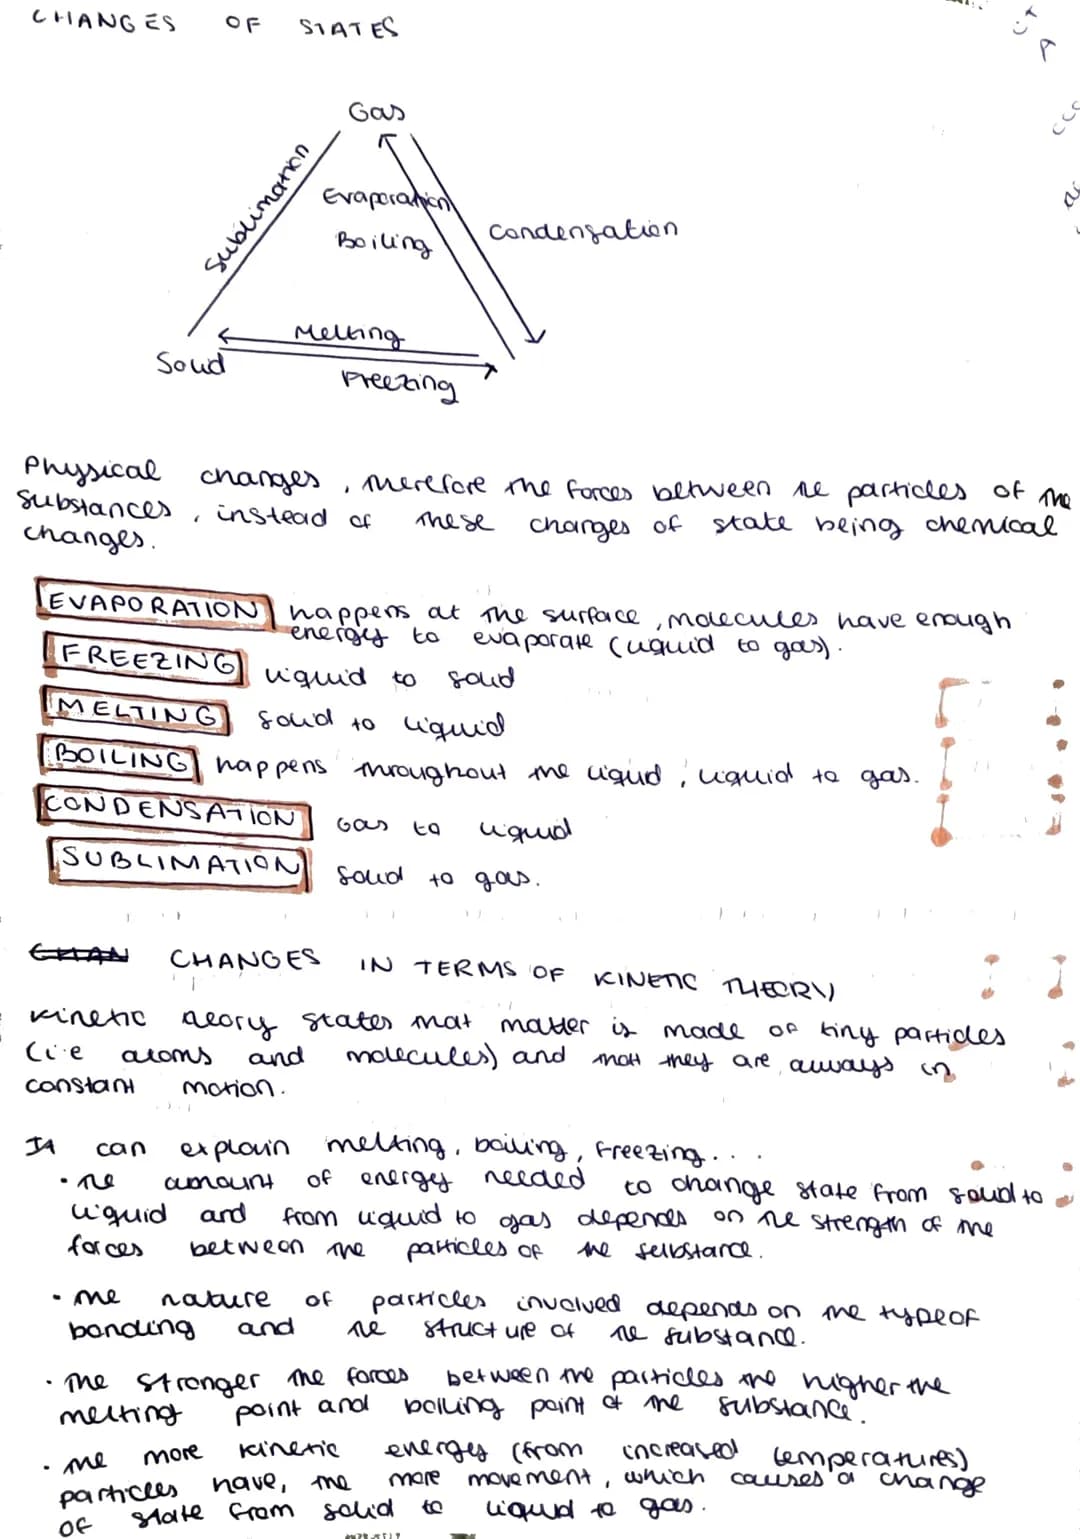 CHANGES OF STATES
Gas
Sublimation
Evaporation
Boiling
Condensation
Melting
Solid
Freezing
Physical changes, therefore the forces between the particles of the
substances, instead of these changes of state being chemical
changes.
EVAPORATION happens at the surface, molecules have enough
energy to evaporate (liquid to gas).
FREEZING liquid to solid
MELTING solid to liquid
BOILING happens throughout the liquid, liquid to gas.
CONDENSATION Gas to liquid
SUBLIMATION solid to gas.
CHAN CHANGES IN TERMS OF KINETIC THEORY
Kinetic theory states that matter is made of tiny particles
(i.e atoms and molecules) and that they are always in
constant motion.
It can explain melting, boiling, freezing...
• the amount of energy needed to change state from solid to
liquid and from liquid to gas depends on the strength of the
forces between the particles of the substance.
• the nature of particles involved depends on the type of
bonding and the structure of the substance.
• The stronger the forces between the particles the higher the
melting point and boiling point of the substance.
• the more kinetic energy (from increased temperatures)
particles have, the more movement, which causes a change
of state from solid to liquid to gas.